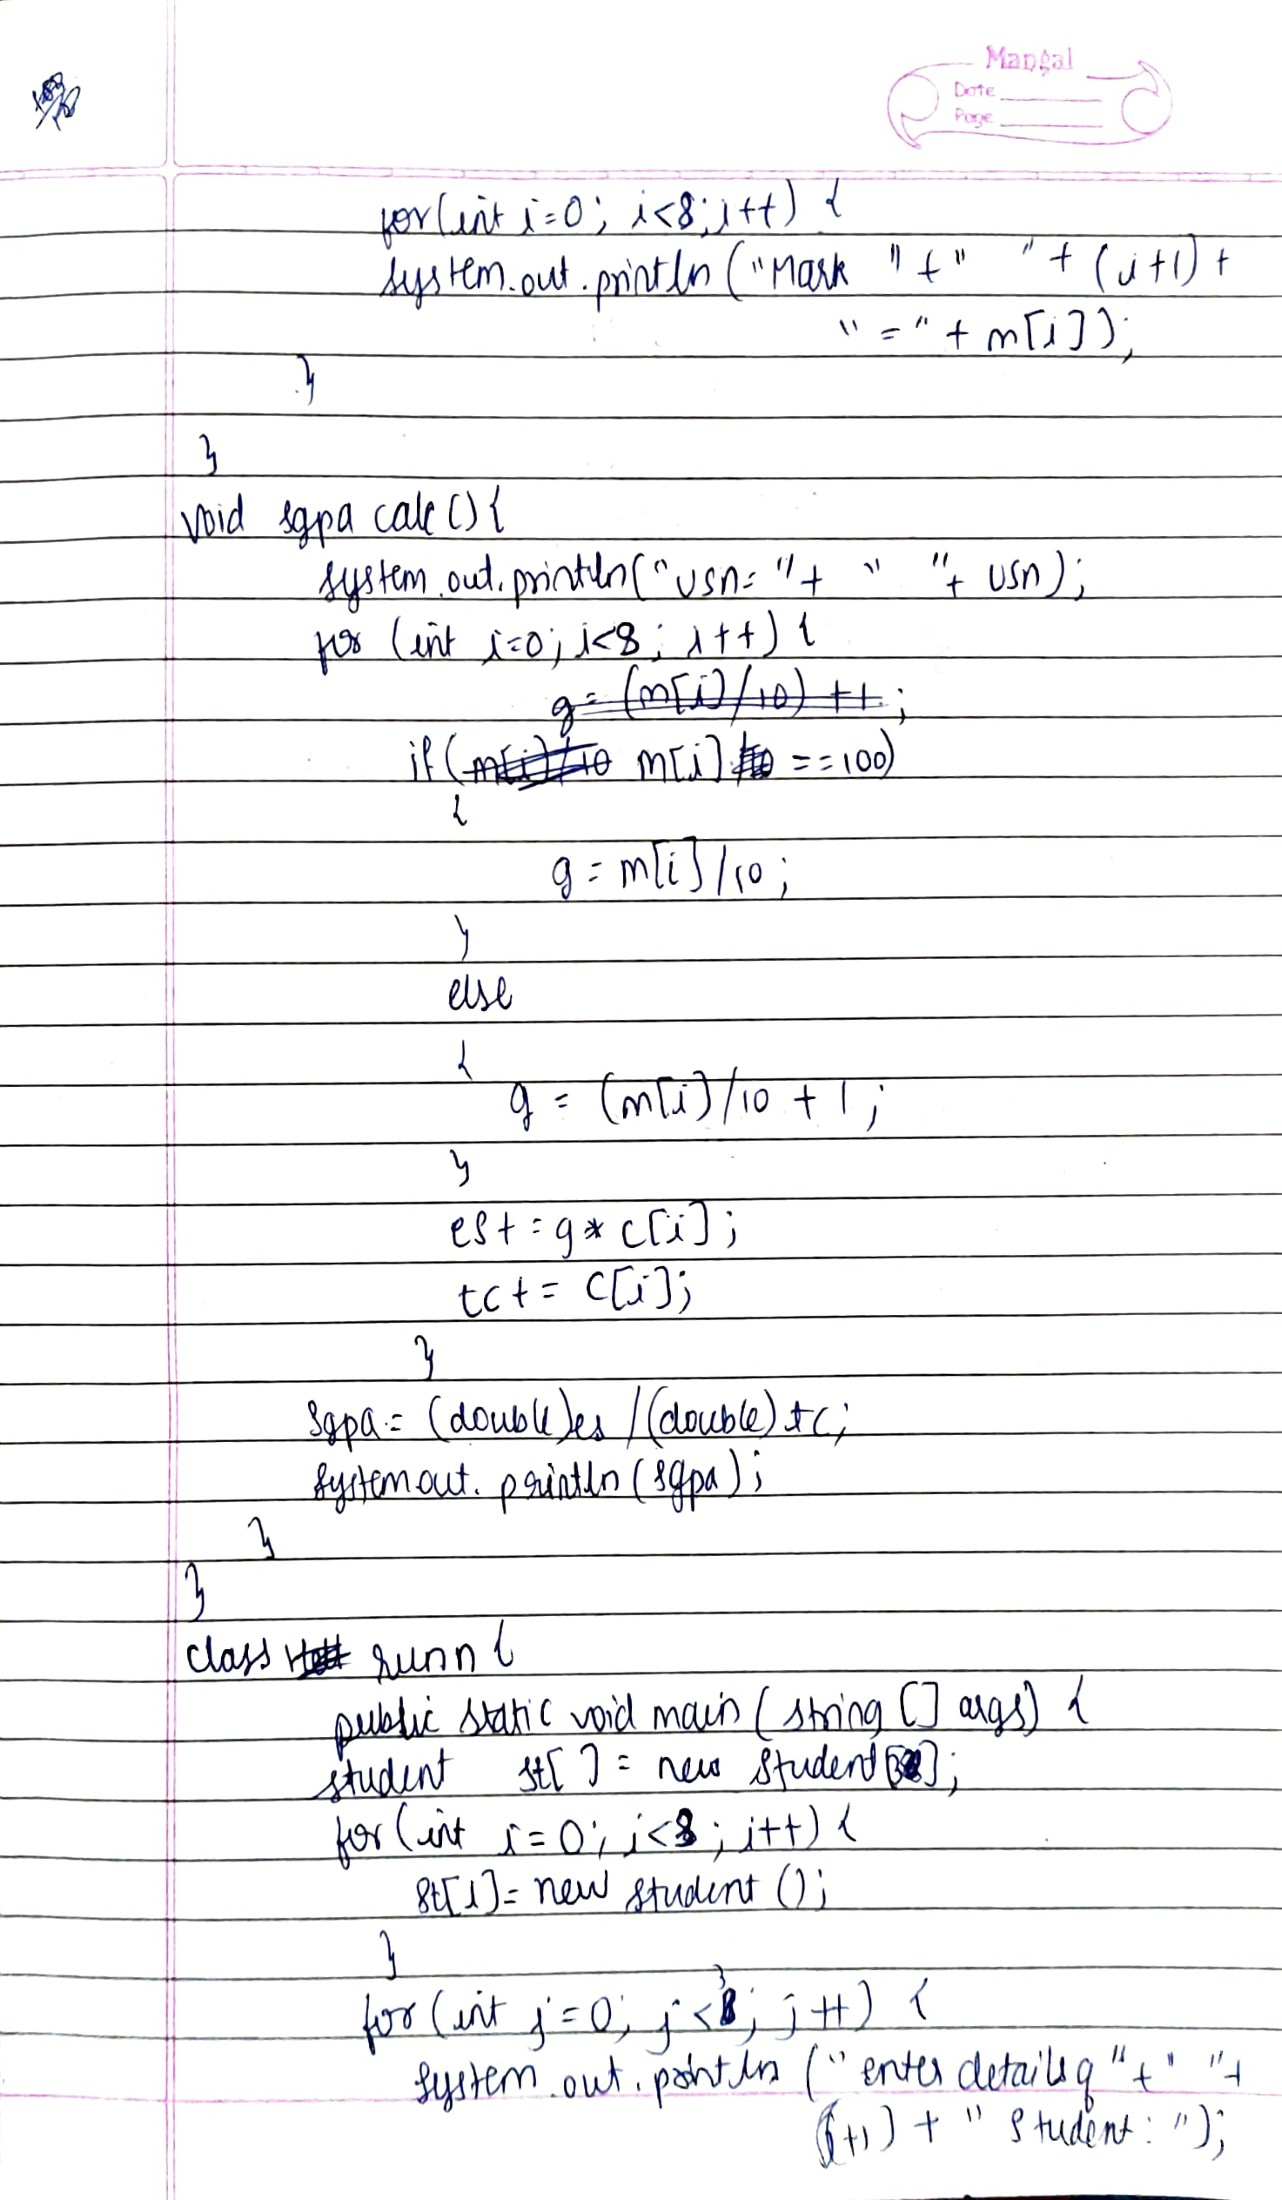 Mangal
Date
Page
for(int i=0; i<8; i++) {
system.out.println ("Mark " + " " + (i+1) +
" = " + m[i]);
}
}
void sgpa calc () {
system.out.println("usn= " + " " + usn);
for (int i=0; i<8; i++) {
g = (m[i]/10) + 1;
if (m[i]/10 m[i] == 100)
{
g = m[i]/10;
}
else
{
g = (m[i]/10 + 1;
}
es+ = g * c[i];
tc+ = c[i];
}
sgpa = (double)es /(double) tc;
system out. println (sgpa);
}
}
class runn {
public static void main (string [] args) {
student st[ ] = new student[];
for (int i = 0; i<3; i++) {
st[i] = new student ();
}
for (int j = 0; j <3; j++) {
system.out.println ("enter details of " + " " +
(j+1) + " student: ");